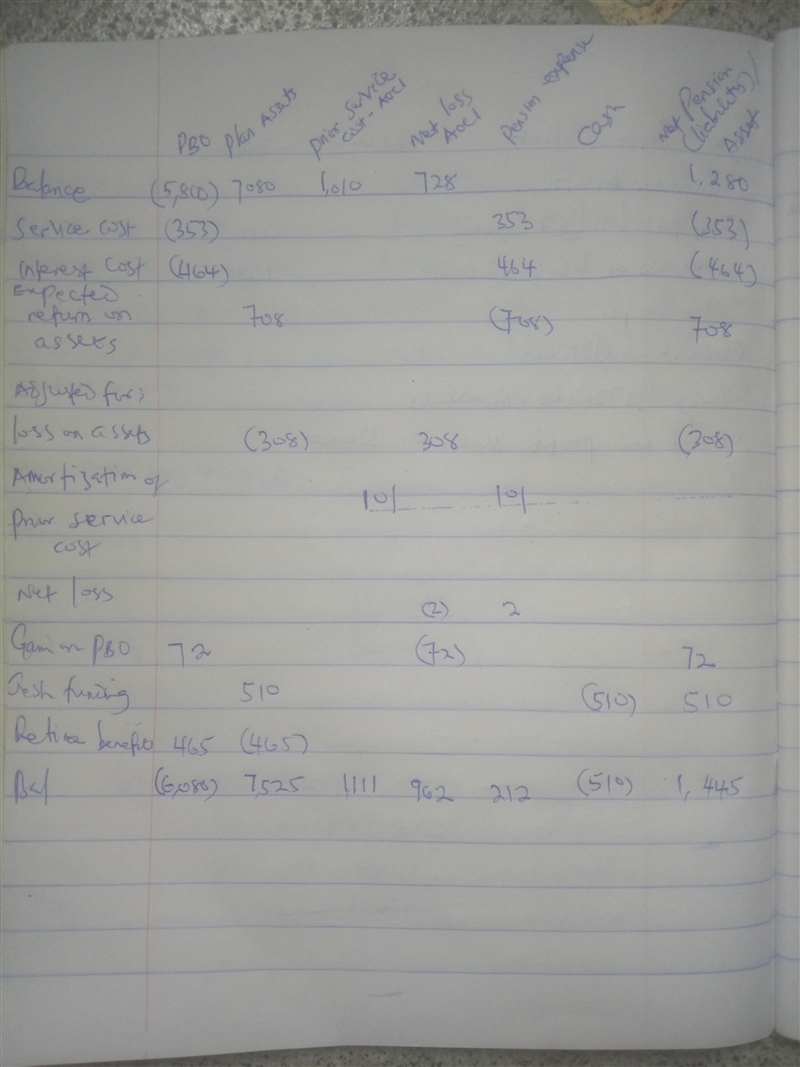 PBO Plan Assets Prior Service Cost - AOCI Net loss AOCI Pension expense Cash Net Pension (liability)/ Asset
Balance (5,800) 7080 1,010 728 1,280
Service cost (353) 353 (353)
Interest cost (464) 464 (464)
Expected
return on 708 (708) 708
assets
Adjusted for:
loss on assets (308) 308 (308)
Amortization of
101 101
Prior service
cost
Net loss (2) 2
Gain on PBO 72 (72) 72
Cash funding 510 (510) 510
Retiree benefits 465 (465)
Bal (6,080) 7,525 1,111 962 212 (510) 1,445